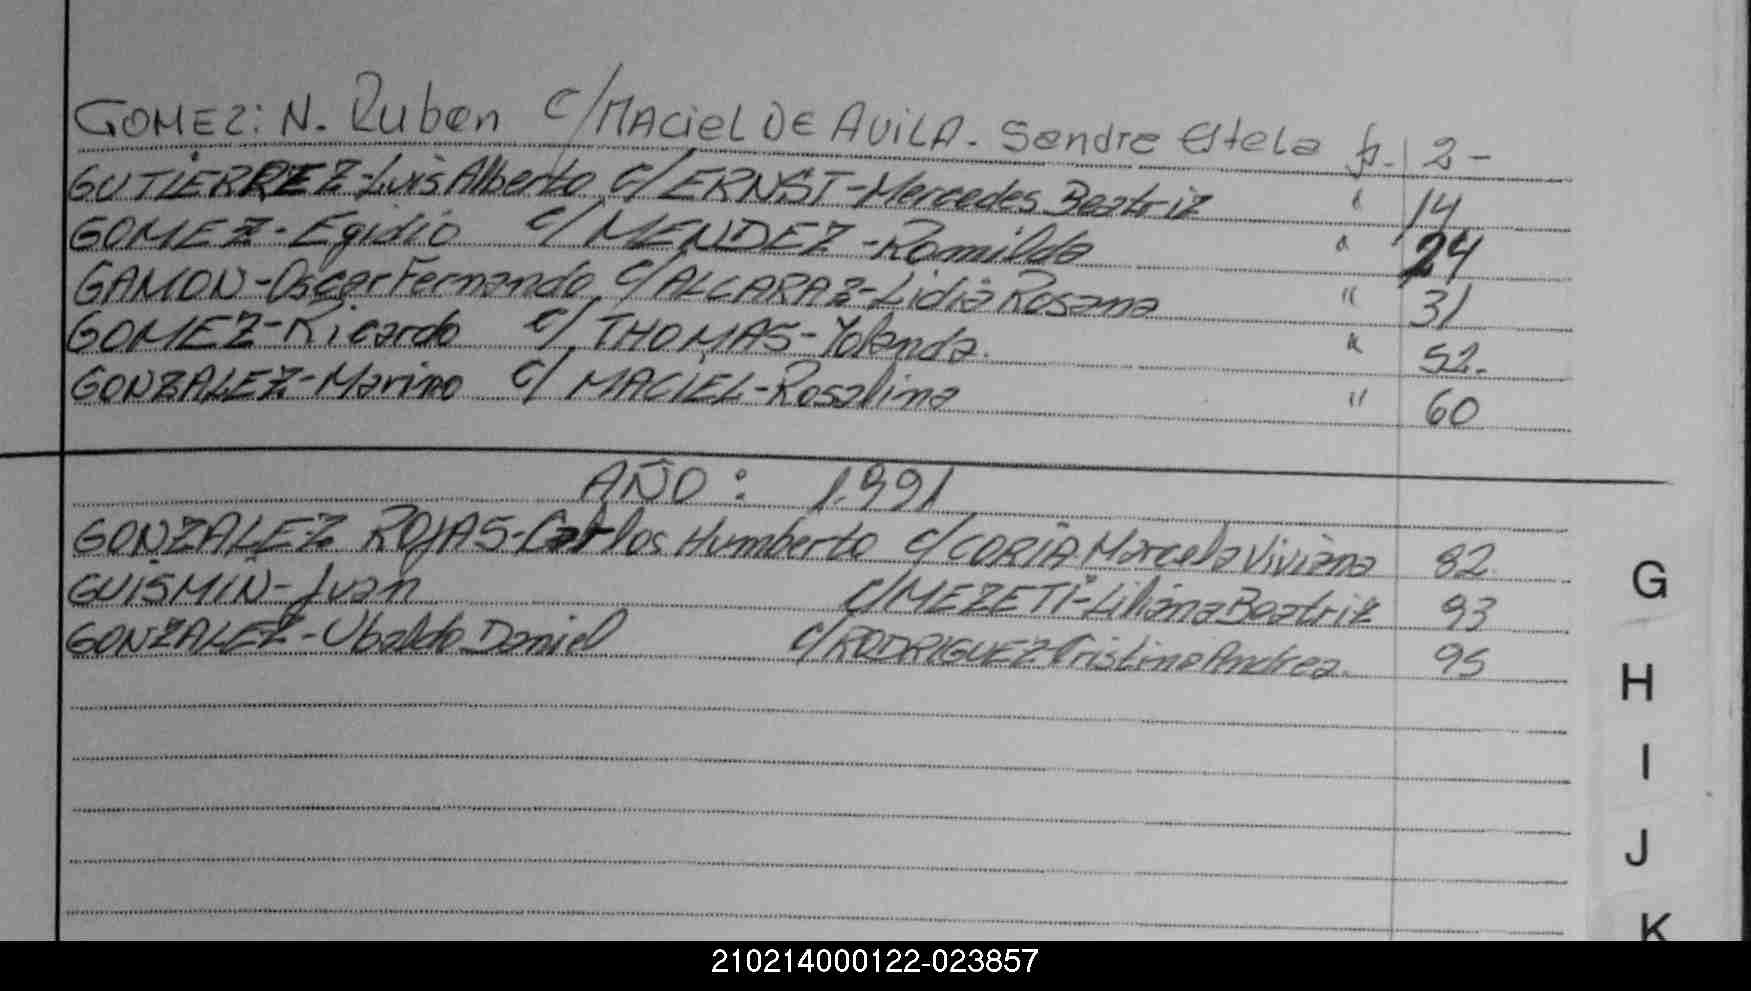 GOMEZ: N. Ruben C/MACIEL DE AVILA. Sandra Estela f. 2-
GUTIERREZ-Luis Alberto C/ERNST-Mercedes Beatriz " 14
GOMEZ-Egidio C/MENDEZ-Romilda " 24
GAMON-Oscar Fernando C/ALCARAZ-Lidia Rosana " 31
GOMEZ-Ricardo C/THOMAS-Yolanda. " 52.
GONZALEZ-Marino C/MACIEL-Rosalina " 60
AÑO: 1.991
GONZALEZ ROJAS-Carlos Humberto C/CORIA Marcela Viviana 82
GUISMIN-Juan C/MEZETI-Liliana Beatriz 93
GONZALEZ-Ubaldo Daniel C/RODRIGUEZ-Cristina Andrea. 95
G
H
I
J
K
210214000122-023857